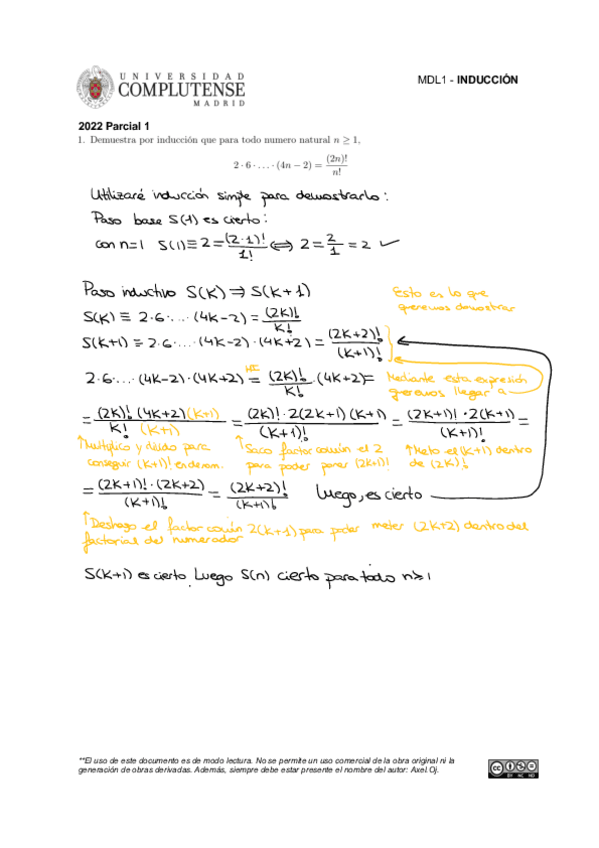 UNIVERSIDAD
COMPLUTENSE
MADRID
MDL1 - INDUCCIÓN
2022 Parcial 1
1. Demuestra por inducción que para todo numero natural n ≥ 1,
2 · 6 · . . . · (4n − 2) = (2n)!/n!
Utilizaré inducción simple para demostrarlo:
Paso base S(1) es cierto:
con n=1 S(1)≡2=(2·1)!/1! ⟺ 2=2/1=2 ✓
Paso inductivo S(K) ⇒ S(K+1)
Esto es lo que
queremos demostrar
S(K) ≡ 2·6·...·(4K-2) = (2K)!/K!
S(K+1) ≡ 2·6·...·(4K-2)·(4K+2) = (2K+2)!/(K+1)!
2·6·...·(4K-2)·(4K+2) =HI (2K)!/K! ·(4K+2)=
Mediante esta expresión
queremos llegar a
= (2K)!(4K+2)(K+1)/K!(K+1) = (2K)!·2(2K+1)(K+1)/(K+1)! = (2K+1)!·2(K+1)/(K+1)! =
↑Multiplico y divido para
conseguir (K+1)! en denom.
↑Saco factor común el 2
para poder poner (2K+1)!
↑Meto el (K+1) dentro
de (2K)!
= (2K+1)!·(2K+2)/(K+1)! = (2K+2)!/(K+1)! Luego, es cierto
↑Deshago el factor común 2(K+1) para poder meter (2K+2) dentro del
factorial del numerador
S(K+1) es cierto. Luego S(n) cierto para todo n≥1
**El uso de este documento es de modo lectura. No se permite un uso comercial de la obra original ni la
generación de obras derivadas. Además, siempre debe estar presente el nombre del autor: Axel.Oj.
CC BY NC ND